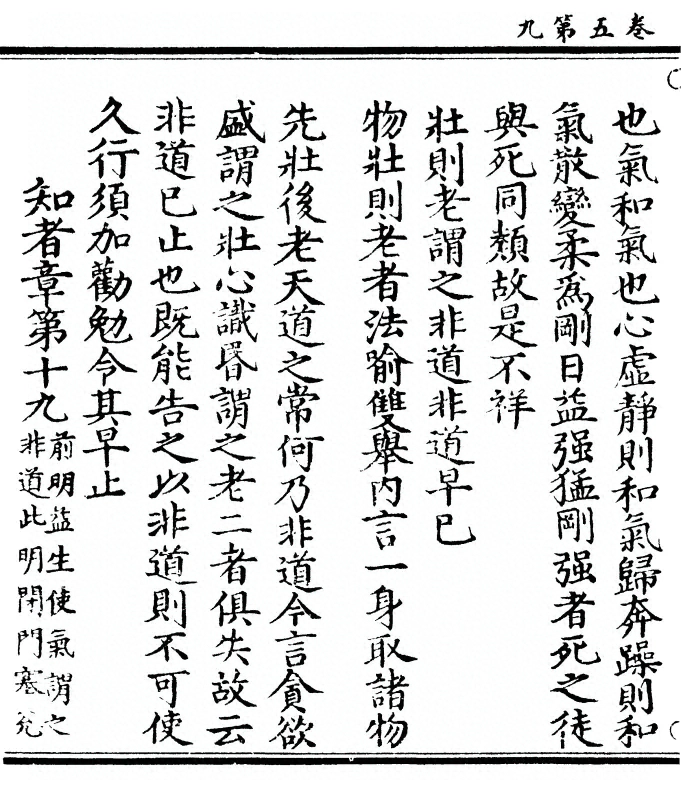 卷五第九
也氣和氣也心虛靜則和氣歸奔躁則和
氣散變柔爲剛日益强猛剛强者死之徒
與死同類故是不祥
壯則老謂之非道非道早已
物壯則老者法喻雙舉内言一身取諸物
先壯後老天道之常何乃非道今言貪欲
盛謂之壯心識昬謂之老二者俱失故云
非道已止也既能告之以非道則不可使
久行須加勸勉令其早止
知者章第十九
前明益生使氣謂之
非道此明閉門塞兊